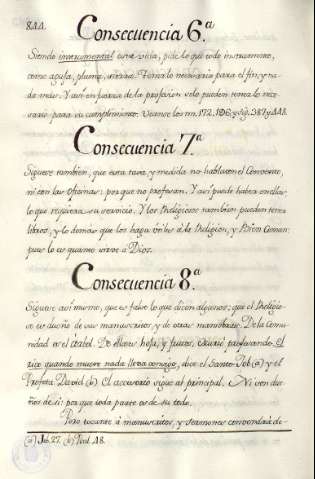 844.
Consecuencia 6.ª
Siendo instrumental esta vida, pide lo que todo instrumento,
como aguja, pluma, sierra. Tomar lo necesario para el fin, y na
da más. Y así en fuerza de la profesion solo pueden tomar lo nece
sario para su cumplimiento. Veanse los nn. 172, 196, y sig. 387 y 448.
Consecuencia 7.ª
Siguese tambien, que esta tasa, y medida no habla con el Convento,
ni con las Oficinas; por que no profesan. Y así puede haber en ellas
lo que requiera su servicio. Y los Religiosos tambien pueden tener
libros, y lo demas que los haga utiles à la Religion, y Bien Comun:
pues lo es quanto sirve à Dios.
Consecuencia 8.ª
Siguese así mismo, que es falso lo que dicen algunos; que el Religio-
so es dueño de sus manuscritos, y de otras maniobras. De la Comu-
nidad es el arbol. De ella es hoja, y frutos. Murió profesando. El
rico quando muere nada lleva consigo, dice el Santo Job (a) y el
Profeta David (b). El accesorio sigue al principal. Ni son due
ños de si: por que toda parte es de su todo.
Pero tocante à manuscritos, y sermones concordará de-
(a) Job. 27. (b) Psal. 48.